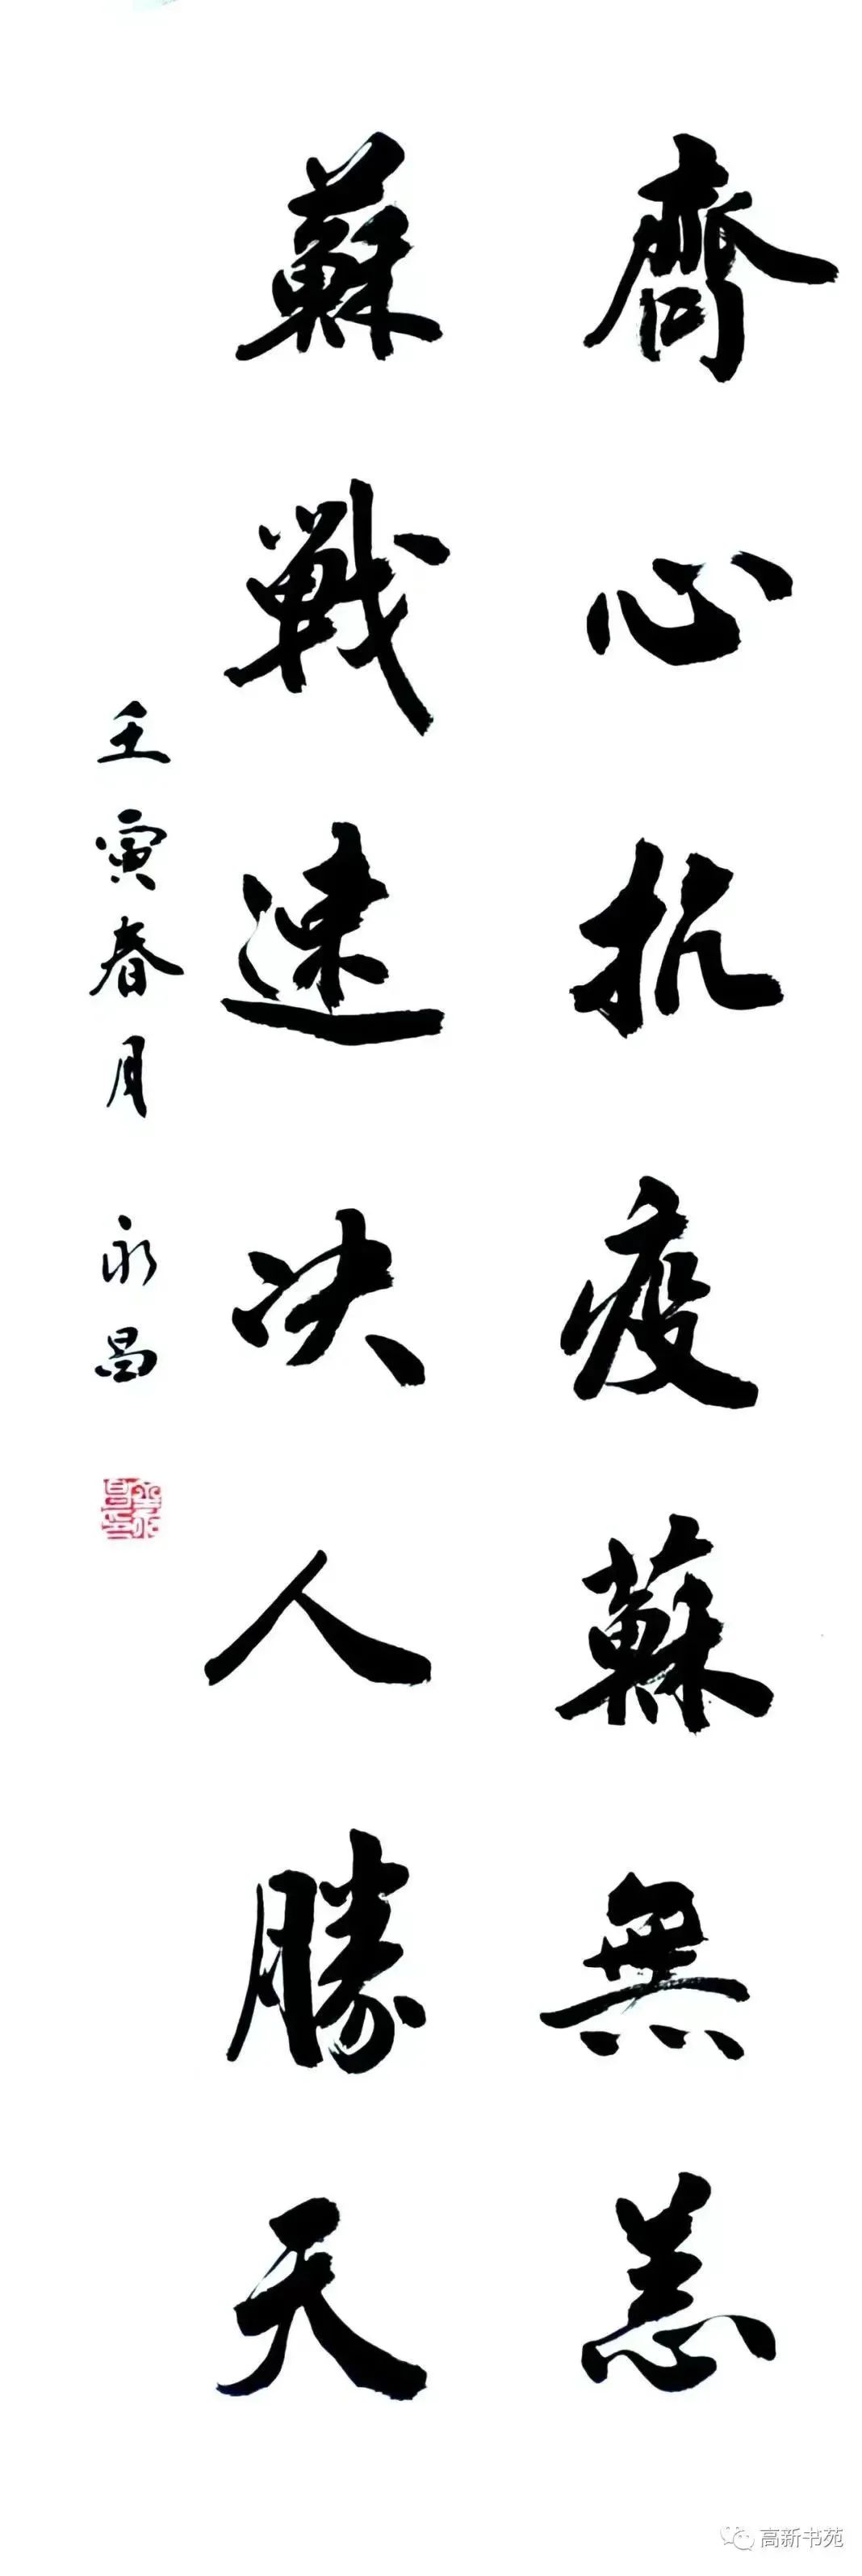 齊心抗疫蘇無恙
蘇戰速决人勝天
壬寅春月 永昌
高新书苑